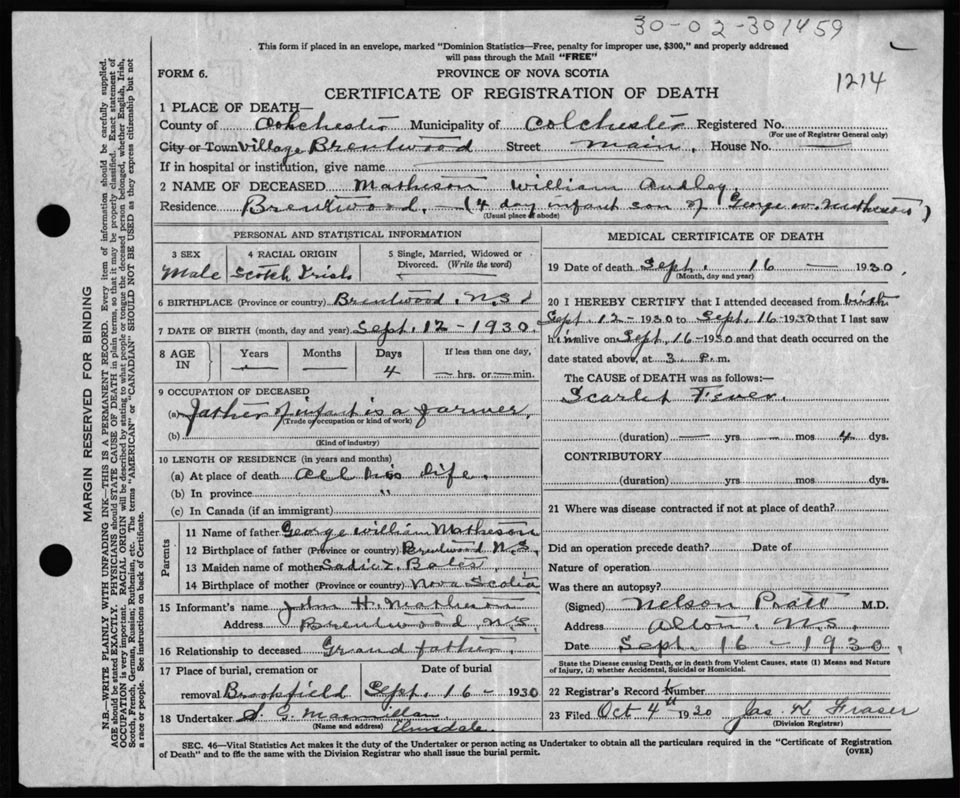 30-02-301459
This form if placed in an envelope, marked "Dominion Statistics—Free, penalty for improper use, $300," and properly addressed
will pass through the Mail "FREE"
1214
FORM 6.
PROVINCE OF NOVA SCOTIA
CERTIFICATE OF REGISTRATION OF DEATH
1 PLACE OF DEATH—
County of Colchester Municipality of Colchester Registered No.
(For use of Registrar General only)
City or Town Village Brentwood Street Main. House No. —
If in hospital or institution, give name
2 NAME OF DECEASED Matheson William Audley.
Residence Brentwood. — (4 day infant son of George W. Matheson)
(Usual place of abode)
PERSONAL AND STATISTICAL INFORMATION
3 SEX
Male
4 RACIAL ORIGIN
Scotch Irish
5 Single, Married, Widowed or
Divorced. (Write the word)
6 BIRTHPLACE (Province or country) Brentwood. N.S.
7 DATE OF BIRTH (month, day and year) Sept. 12 - 1930.
8 AGE
IN
Years
Months
Days
4
If less than one day,
— hrs. or — min.
9 OCCUPATION OF DECEASED
(a) Father of infant is a farmer.
(Trade or occupation or kind of work)
(b)
(Kind of industry)
10 LENGTH OF RESIDENCE (in years and months)
(a) At place of death All his life.
(b) In province "
(c) In Canada (if an immigrant)
Parents
11 Name of father George William Matheson
12 Birthplace of father (Province or country) Brentwood N.S.
13 Maiden name of mother Sadie Z. Bates.
14 Birthplace of mother (Province or country) Nova Scotia
15 Informant's name John H. Matheson
Address Brentwood N.S.
16 Relationship to deceased Grand father.
17 Place of burial, cremation or
removal Brookfield
Date of burial
Sept. 16 - 1930
18 Undertaker Macmillan
(Name and address)
MEDICAL CERTIFICATE OF DEATH
19 Date of death Sept. 16 — 1930.
(Month, day and year)
20 I HEREBY CERTIFY that I attended deceased from birth
Sept. 12 - 1930 to Sept. 16 - 1930 that I last saw
him alive on Sept. 16 - 1930 and that death occurred on
date stated above, at 3. P. m.
The CAUSE OF DEATH was as follows:—
Scarlet Fever.
(duration) — yrs — mos 4 dys.
CONTRIBUTORY
(duration) yrs. mos. dys.
21 Where was disease contracted if not at place of death?
Did an operation precede death? Date of
Nature of operation
Was there an autopsy?
(Signed) Nelson Pratt M.D.
Address Alton. N.S.
Date Sept. 16 - 1930.
State the Disease causing Death, or in death from Violent Causes, state (1) Means and Nature
of Injury, (2) whether Accidental, Suicidal or Homicidal.
22 Registrar's Record Number
23 Filed Oct 4th 1930 Jas. K. Fraser
(Division Registrar)
SEC. 46—Vital Statistics Act makes it the duty of the Undertaker or person acting as Undertaker to obtain all the particulars required in the "Certificate of Registration
of Death" and to file the same with the Division Registrar who shall issue the burial permit.
(OVER)
MARGIN RESERVED FOR BINDING
N.B.—WRITE PLAINLY WITH UNFADING INK—THIS IS A PERMANENT RECORD. Every item of information should be carefully supplied.
AGE should be stated EXACTLY. PHYSICIANS should STATE CAUSE OF DEATH in plain terms, so that it may be properly classified. Exact statement of
OCCUPATION is very important. RACIAL ORIGIN will be described by stating to what people or tongue the deceased person belonged, whether English, Irish,
Scotch, French, German, Russian, Ruthenian, etc. The terms "AMERICAN" or "CANADIAN" SHOULD NOT BE USED as they express citizenship but not
a race or people. See instructions on back of Certificate.